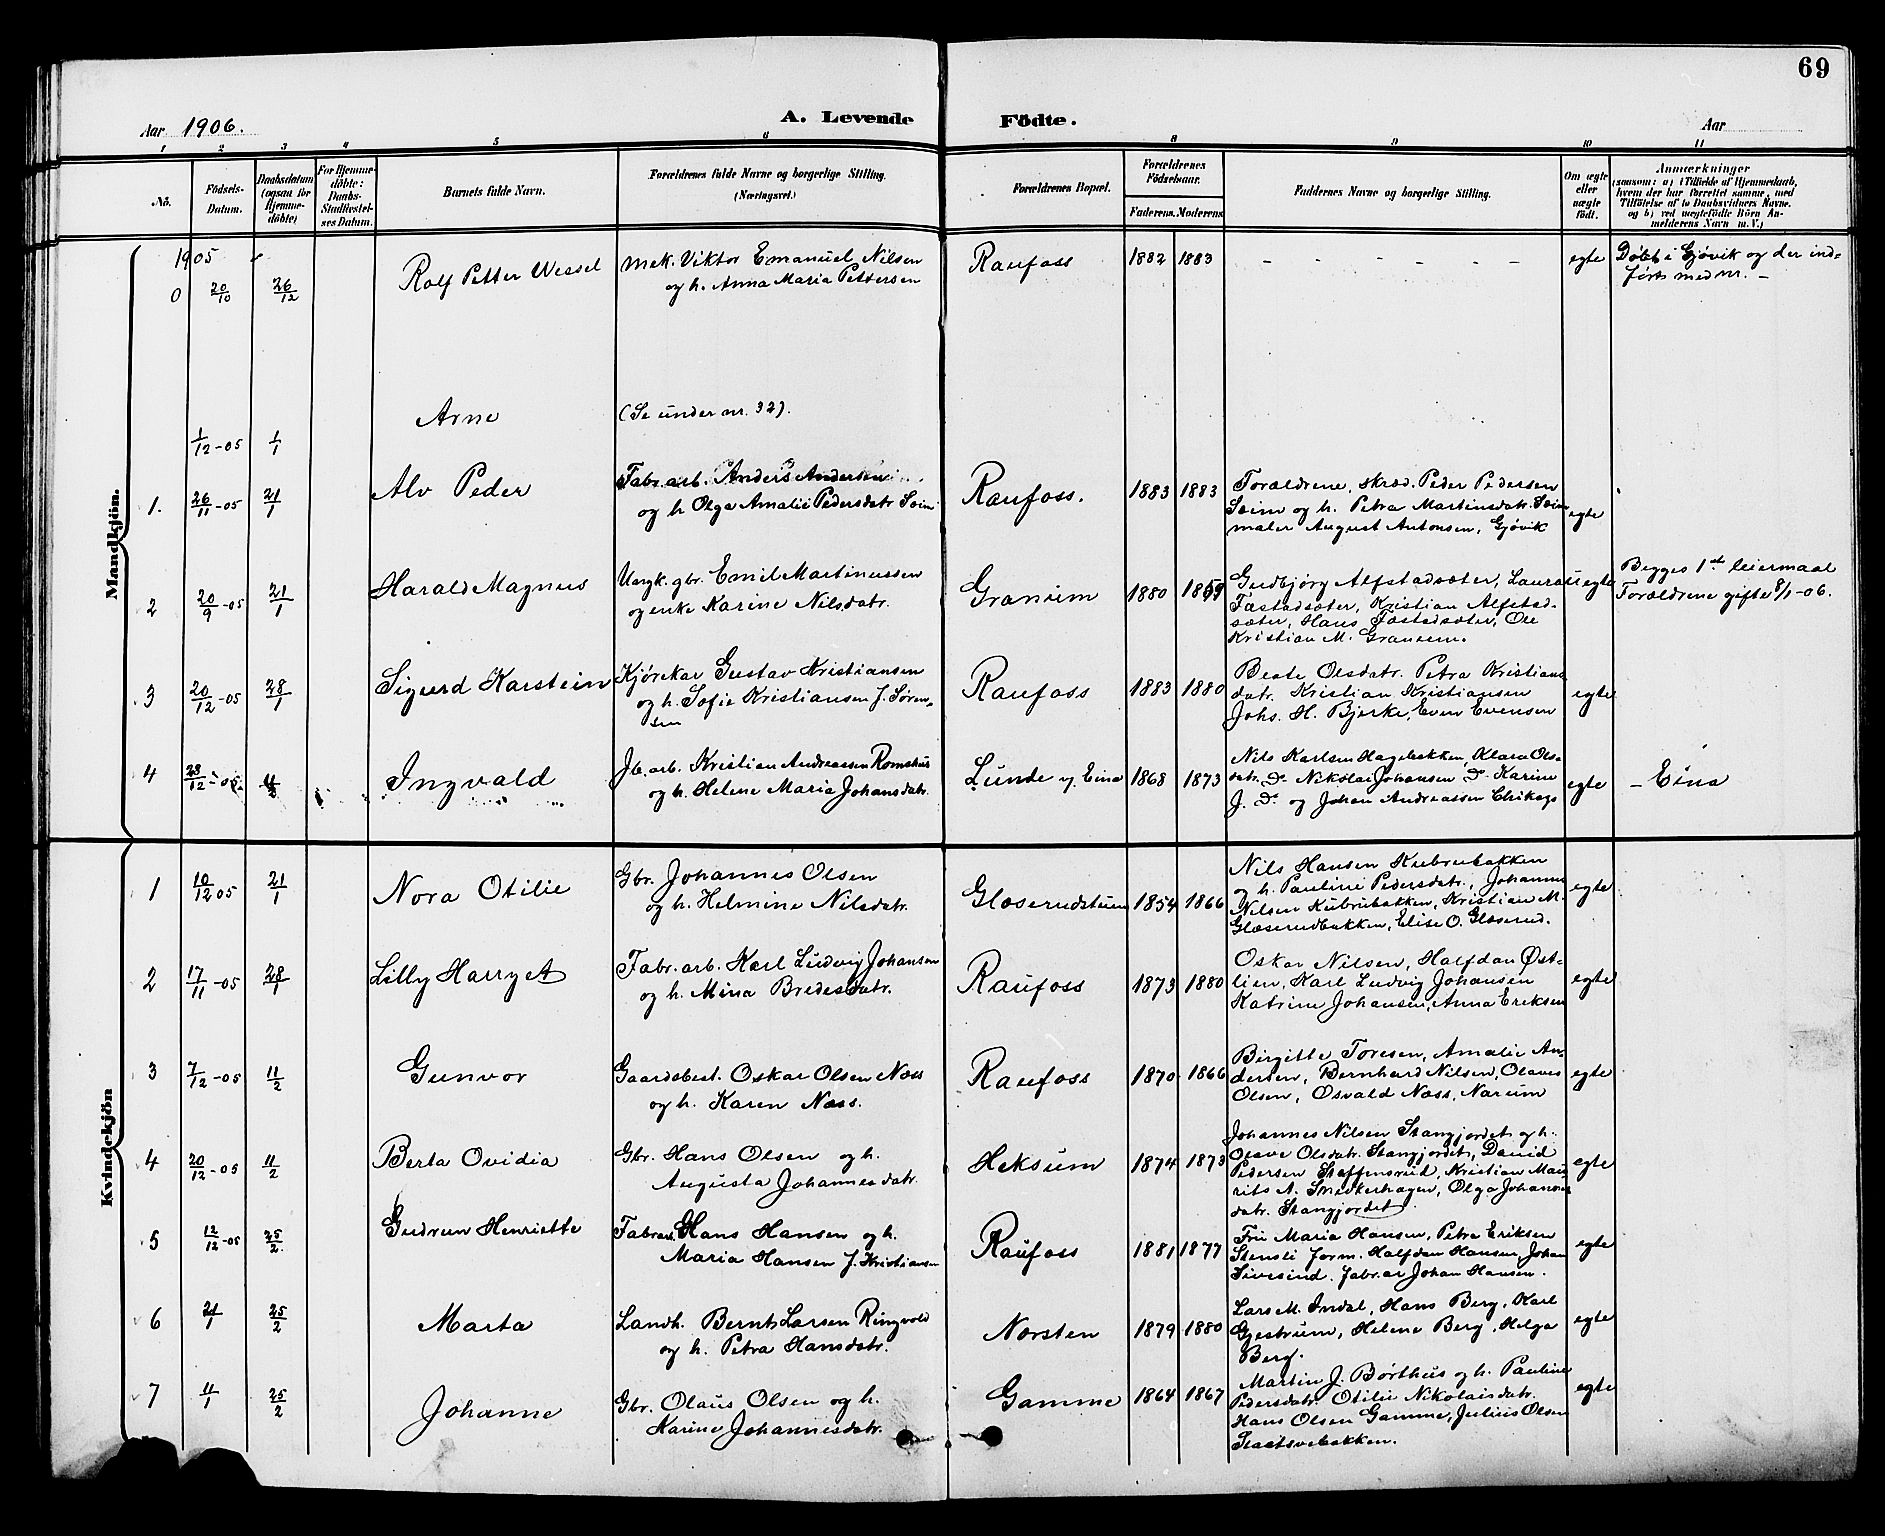 69
Aar 1906.
A. Levende Födte.
Aar
1 2 3 4 5 6 8 9 10 11
No.
Födsels-
Datum.
Daabsdatum
(ogsaa for
Hjemme-
döbte)
For Hjemme-
döbte:
Daabs-
Stadfæstel-
ses Datum.
Barnets fulde Navn.
Forældrenes fulde Navne og borgerlige Stilling.
(Næringsvei.)
Forældrenes Bopæl.
Forældrenes
Födselsaar.
Faderens. Moderens
Faddernes Navne og borgerlige Stilling.
Om ægte
eller
uægte
födt.
Anmærkninger
(saasom: a) i Tilfælde af Hjemmedaab,
hvem der har forrettet samme, med
Tilföielse af to Daabsvidners Navne.
og b) ved uægtefödte Börn An-
melderens Navn m.V.)
Mandkjön.
1905
0 20/10 26/12 Rolf Petter Wessel
Mek. Viktor Emanuel Nilsen
og h. Anna Maria Pettersen
Raufoss 1882 1883 - - - - - - egte
Døbt i Gjøvik og der ind-
ført med nr. -
1/12-05 1/1 Arne (Se under nr. 32).
1. 26/11-05 21/1 Alv Peder
Fabr. arb. Anders Andersen
og h Olga Amalie Pedersdatr. Seim
Raufoss. 1883 1883
Forældrene, skræd. Peder Pedersen
Seim og h. Petra Martinsdatr. Seim
maler August Antonsen, Gjøvik
egte
2 20/9-05 21/1 Harald Magnus
Ungk. gbr. Emil Martinussen
og enke Karine Nilsdatr.
Granum 1880 1859
Gudbjørg Alfstadsæter, Laura
Fæstadsæter, Kristian Alfstad-
sæter, Hans Fæstadsæter, Ole
Kristian M. Granum.
egte
Begges 1ste leiermaal
Forældrene gifte 8/1-06.
3 20/12-05 28/1 Sigurd Karstein
Kjørekar Gustav Kristiansen
og h. Sofie Kristiansen f. Søren-
sen
Raufoss 1883 1880
Beate Olsdatr. Petra Kristians
datr. Kristian Kristiansen
Johs. H. Bjerke, Even Evensen
egte
4 28/12-05 4/2 Ingvald
Jb. arb. Kristian Andreassen Romshus
og h. Helene Maria Johansdatr.
Lunde v. Eina 1868 1873
Nils Karlsen Hagebakken, Klara Ols-
datr. Do. Nikolai Johansen Do. Karine
J. Do. og Johan Andreassen
egte
- Eina
Kvindekjön
1 10/12 05 21/1 Nora Otilie
Gbr. Johannes Olsen
og h. Helmine Nilsdatr.
Glæserudstuen 1854 1866
Nils Hansen Kubrubakken
og h. Pauline Pedersdatr., Johannes
Nilsen Kubrubakken, Kristian M.
Glæserudbakken, Elise O. Glæserud.
egte
2 17/11-05 28/1 Lilly Harryet
Fabr. arb. Karl Ludvig Johansen
og h. Mina Bredesdatr.
Raufoss 1873 1880
Oskar Nilsen, Halfdan Øst-
lien, Karl Ludvig Johansen
Katrine Johansen, Anna Eriksen
egte
3 7/12-05 11/2 Gunvor
Gaardsbest. Oskar Olsen Næss
og h. Karen Næss.
Raufoss 1870 1866
Birgitte Toresen, Amalie An-
dersen, Bernhard Nilsen, Olaves
Olsen, Osvald Næss, Narum
egte
4 20/12-05 11/2 Berta Ovidia
Gbr. Hans Olsen og h.
Augusta Johannesdatr.
Heksum 1874 1873
Johannes Nilsen Stangjordet og h.
Olave Olsdatr. Stangjordet, David
Pedersen Steffensrud, Kristian Mau-
rits A. Smedkerhagen, Olga Johannes
datr. Stangjordet.
egte
5 12/12-05 25/2 Gudrun Henriette
Fabrar. Hans Hansen og h.
Maria Hansen f. Kristiansen
Raufoss 1881 1877
Fru Maria Hansen, Petra Eriksen
Stensli form. Halfdan Hansen, Johan
Sivesind. fabr.ar Johan Hansen.
egte
6 21/1 25/2 Marta
Landh. Bernt Larsen Ringvold
og h. Petra Hansdatr.
Norsten 1879 1880
Lars M. Indal, Hans Berg, Karl
Gjestrum, Helene Berg, Helga
Berg.
egte
7 4/1 25/2 Johanne
Gbr. Olaus Olsen og h.
Karine Johannesdatr.
Gamme 1864 1867
Martin J. Børthus og h. Pauline
Pedersdatr. Otilie Nikolaisdatr.
Hans Olsen Gamme, Julius Olsen
Slaatsvebakken.
egte